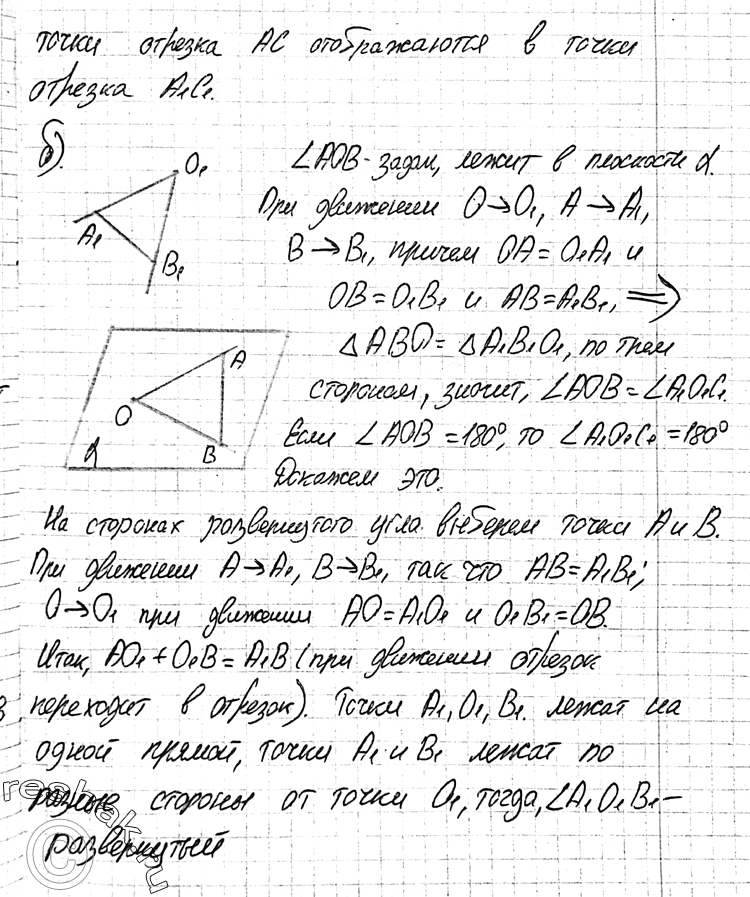 точки отрезка AC отображаются в точки
отрезка A₁C₁.
б).
O₁
A₁
B₁
∠AOB - задан, лежит в плоскости α.
При движении O→O₁, A→A₁,
B→B₁, причем OA = O₁A₁ и
OB = O₁B₁ и AB = A₁B₁, ⇒
△ABO = △A₁B₁O₁, по трем
сторонам, значит, ∠AOB = ∠A₁O₁C₁.
Если ∠AOB = 180°, то ∠A₁O₁C₁ = 180°
Докажем это.
A
O
B
α
На сторонах развернутого угла выберем точки A и B.
При движении A→A₁, B→B₁, так что AB = A₁B₁;
O→O₁ при движении AO = A₁O₁ и O₁B₁ = OB.
Итак, AO₁ + O₁B = A₁B (при движении отрезок
переходит в отрезок). Точки A₁, O₁, B₁. лежат на
одной прямой, точки A₁ и B₁ лежат по
разные стороны от точки O₁, тогда, ∠A₁O₁B₁ –
развернутый
reshak.ru
©